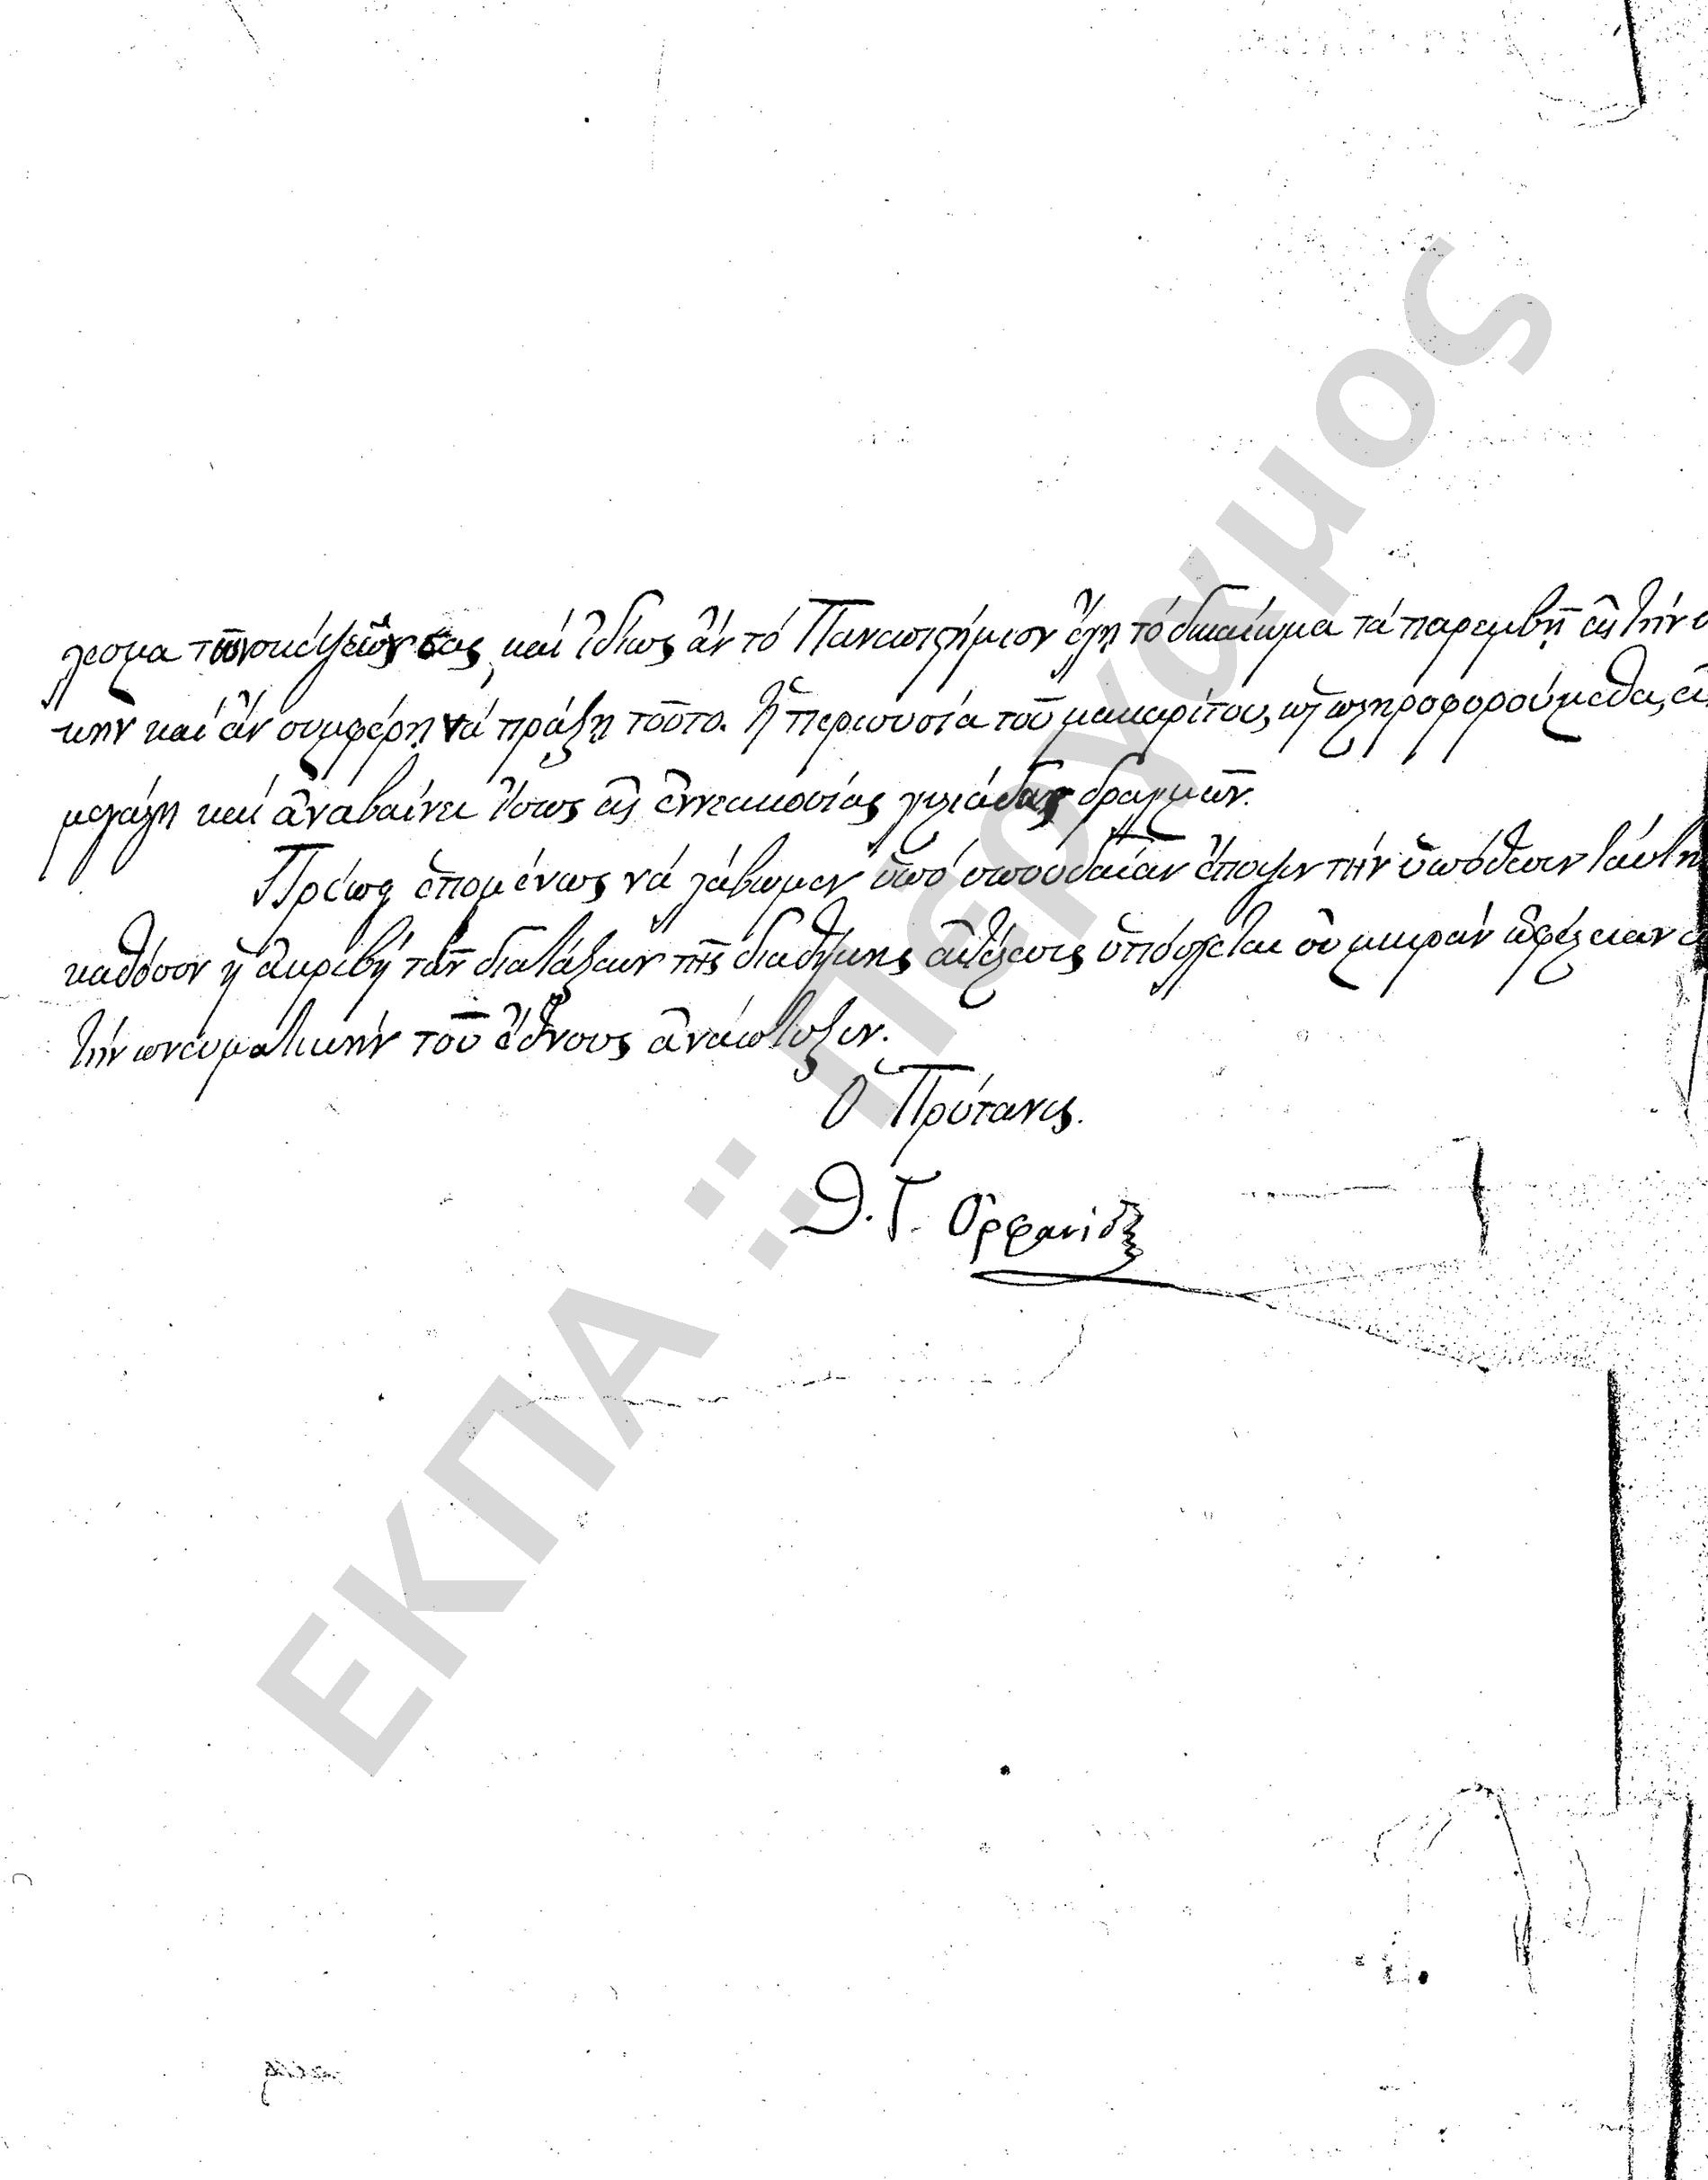 λεσμα τῶν σκέψεών σας, καὶ ἰδίως ἂν τό Πανεπιστήμιον ἔχῃ τό δικαίωμα νά παρεμβῇ εἰς τήν δ
κην καί ἂν συμφέρῃ νά πράξῃ τοῦτο. Ἡ περιουσία τοῦ μακαρίτου, ὡς πληροφορούμεθα, εἶ
μεγάλη καί ἀναβαίνει ἴσως εἰς ἐννεακοσίας χιλιάδας δραχμῶν.
Πρέπει ἑπομένως νά λάβωμεν ὑπό σπουδαίαν ἔποψιν τήν ὑπόθεσιν ταύτην
καθόσον ἡ ἀκριβή τῶν διατάξεων τῆς διαθήκης ἐκτέλεσις ὑπόσχεται οὐ μικράν ὠφέλειαν
τήν πνευματικήν τοῦ ἔθνους ἀνάπτυξιν.
Ὁ Πρύτανις.
Θ. Γ. Ὀρφανίδης
ΕΚΠΑ :: Πέργαμος